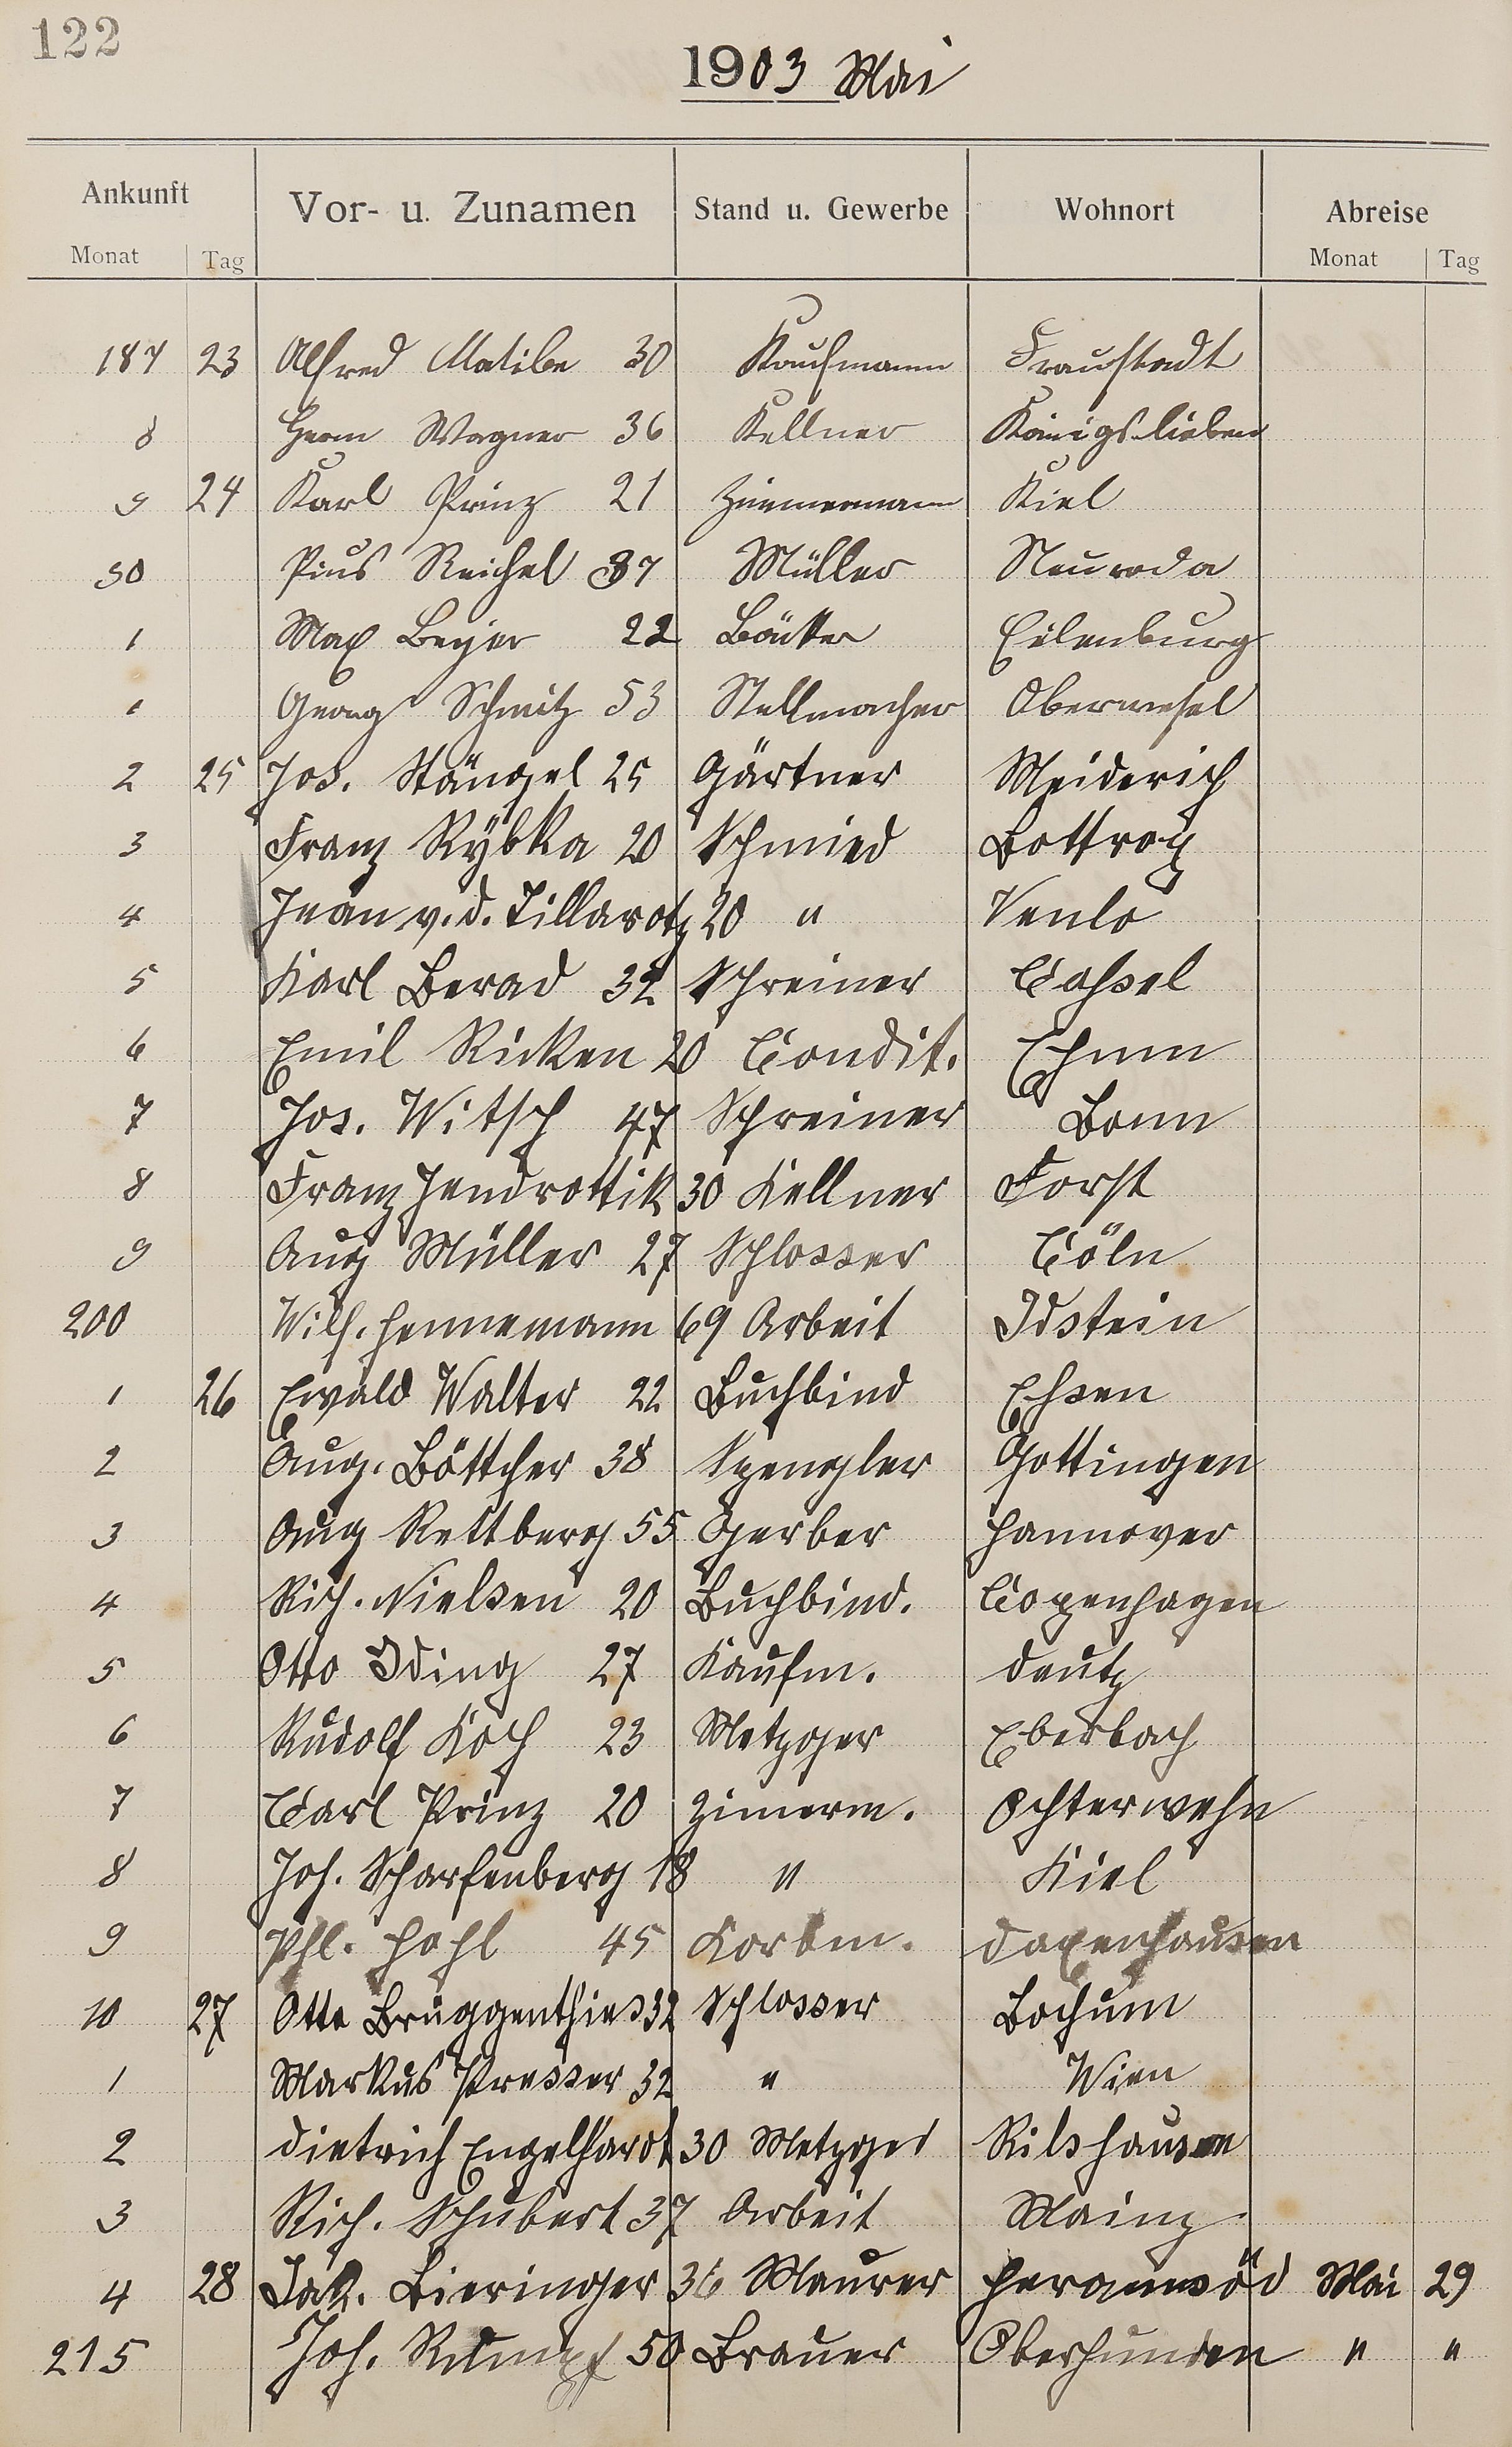 122
1903 Mai
Ankunft Vor- u. Zunamen Stand u. Gewerbe Wohnort Abreise
Monat Tag Monat Tag
187 23 Alfred Matibe 30 Kaufmann Fraustadt
8 Herm Wagner 36 Kellner Königslieben
9 24 Karl Prinz 21 Zimmermann Kiel
90 Pius Reichel 37 Müller Neuroda
1 Max Beyer 22 Bäcker Eilenburg
1 Georg Schmitz 53 Stellmacher Oberwesel
2 25 Jos. Stängel 25 Gärtner Meiderich
3 Franz Rybka 20 Schmied Bottrop
4 Jean v. d. Tillarotz 20 " Venlo
5 Karl Berad 32 Schreiner Cassel
6 Emil Ricken 20 Condit.
7 Jos. Witsch 47 Schreiner Bonn
8 Franz Jendrottik 30 Kellner Forst
9 Aug Müller 27 Schlosser Cöln
200 Wilh. Hennemann 69 Arbeit Idstein
1 26 Ewald Walter 22 Buchbind Essen
2 Aug. Böttcher 38 Spengler Gottingen
3 Aug Rettberg 55 Gerber Hannover
4 Rich. Nielsen 20 Buchbind. Copenhagen
5 Otto Iding 27 Kaufm. Deutz
6 Rudolf Koch 23 Metzger Eberbach
7 Carl Prinz 20 Zimerm. Ochterwehn
8 Joh. Scharfenberg 18 " Kiel
9 Phl. Hohl 45 Korbm. Daxenhausen
10 27 Otto Brüggenthies 32 Schlosser Bochum
1 Markus Presser 32 " Wien
2 Dietrich Engelhardt 30 Metzger Rilshausen
3 Rich. Schubert 37 Arbeit Mainz
4 28 Jak. Bieringer 36 Maurer Mai 29
215 Joh. Rumpf 50 Brauer Oberhunden " "